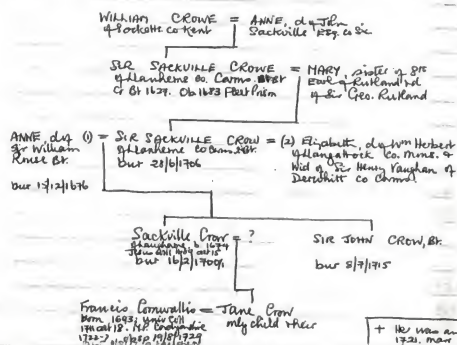 WILLIAM CROWE = ANNE, d of John
of Socketts co Kent Sackville Esq. co Sx
SIR SACKVILLE CROWE = MARY, sister of 8th
of Llanherne co. Carms. Bt Earl of Rutland & d
Cr Bt 1627. Ob 1683 Fleet Prison of Sir Geo. Rutland
ANNE, d of (1) = SIR SACKVILLE CROW = (2) Elizabeth, d of Wm Herbert
Sir William of Llanherne co Carms. Bt. of Llangattock co. Mons. &
Rouse Bt. bur 28/6/1706 Wid of Sir Henry Vaughan of
bur 15/12/1676 Derwhitt co Carms.
Sackville Crow = ? SIR JOHN CROW, Bt.
of Laugharne, b 1674
Jesus Coll 1689 aet 15
bur 16/2/1700/1 bur 8/7/1715
Francis Cornwallis = Jane Crow
born 1693; Univ Coll only child & heir
1711 aet 18. M.P. Cardiganshire
1722-7 19/8/1729
+ He was an
1721, marr